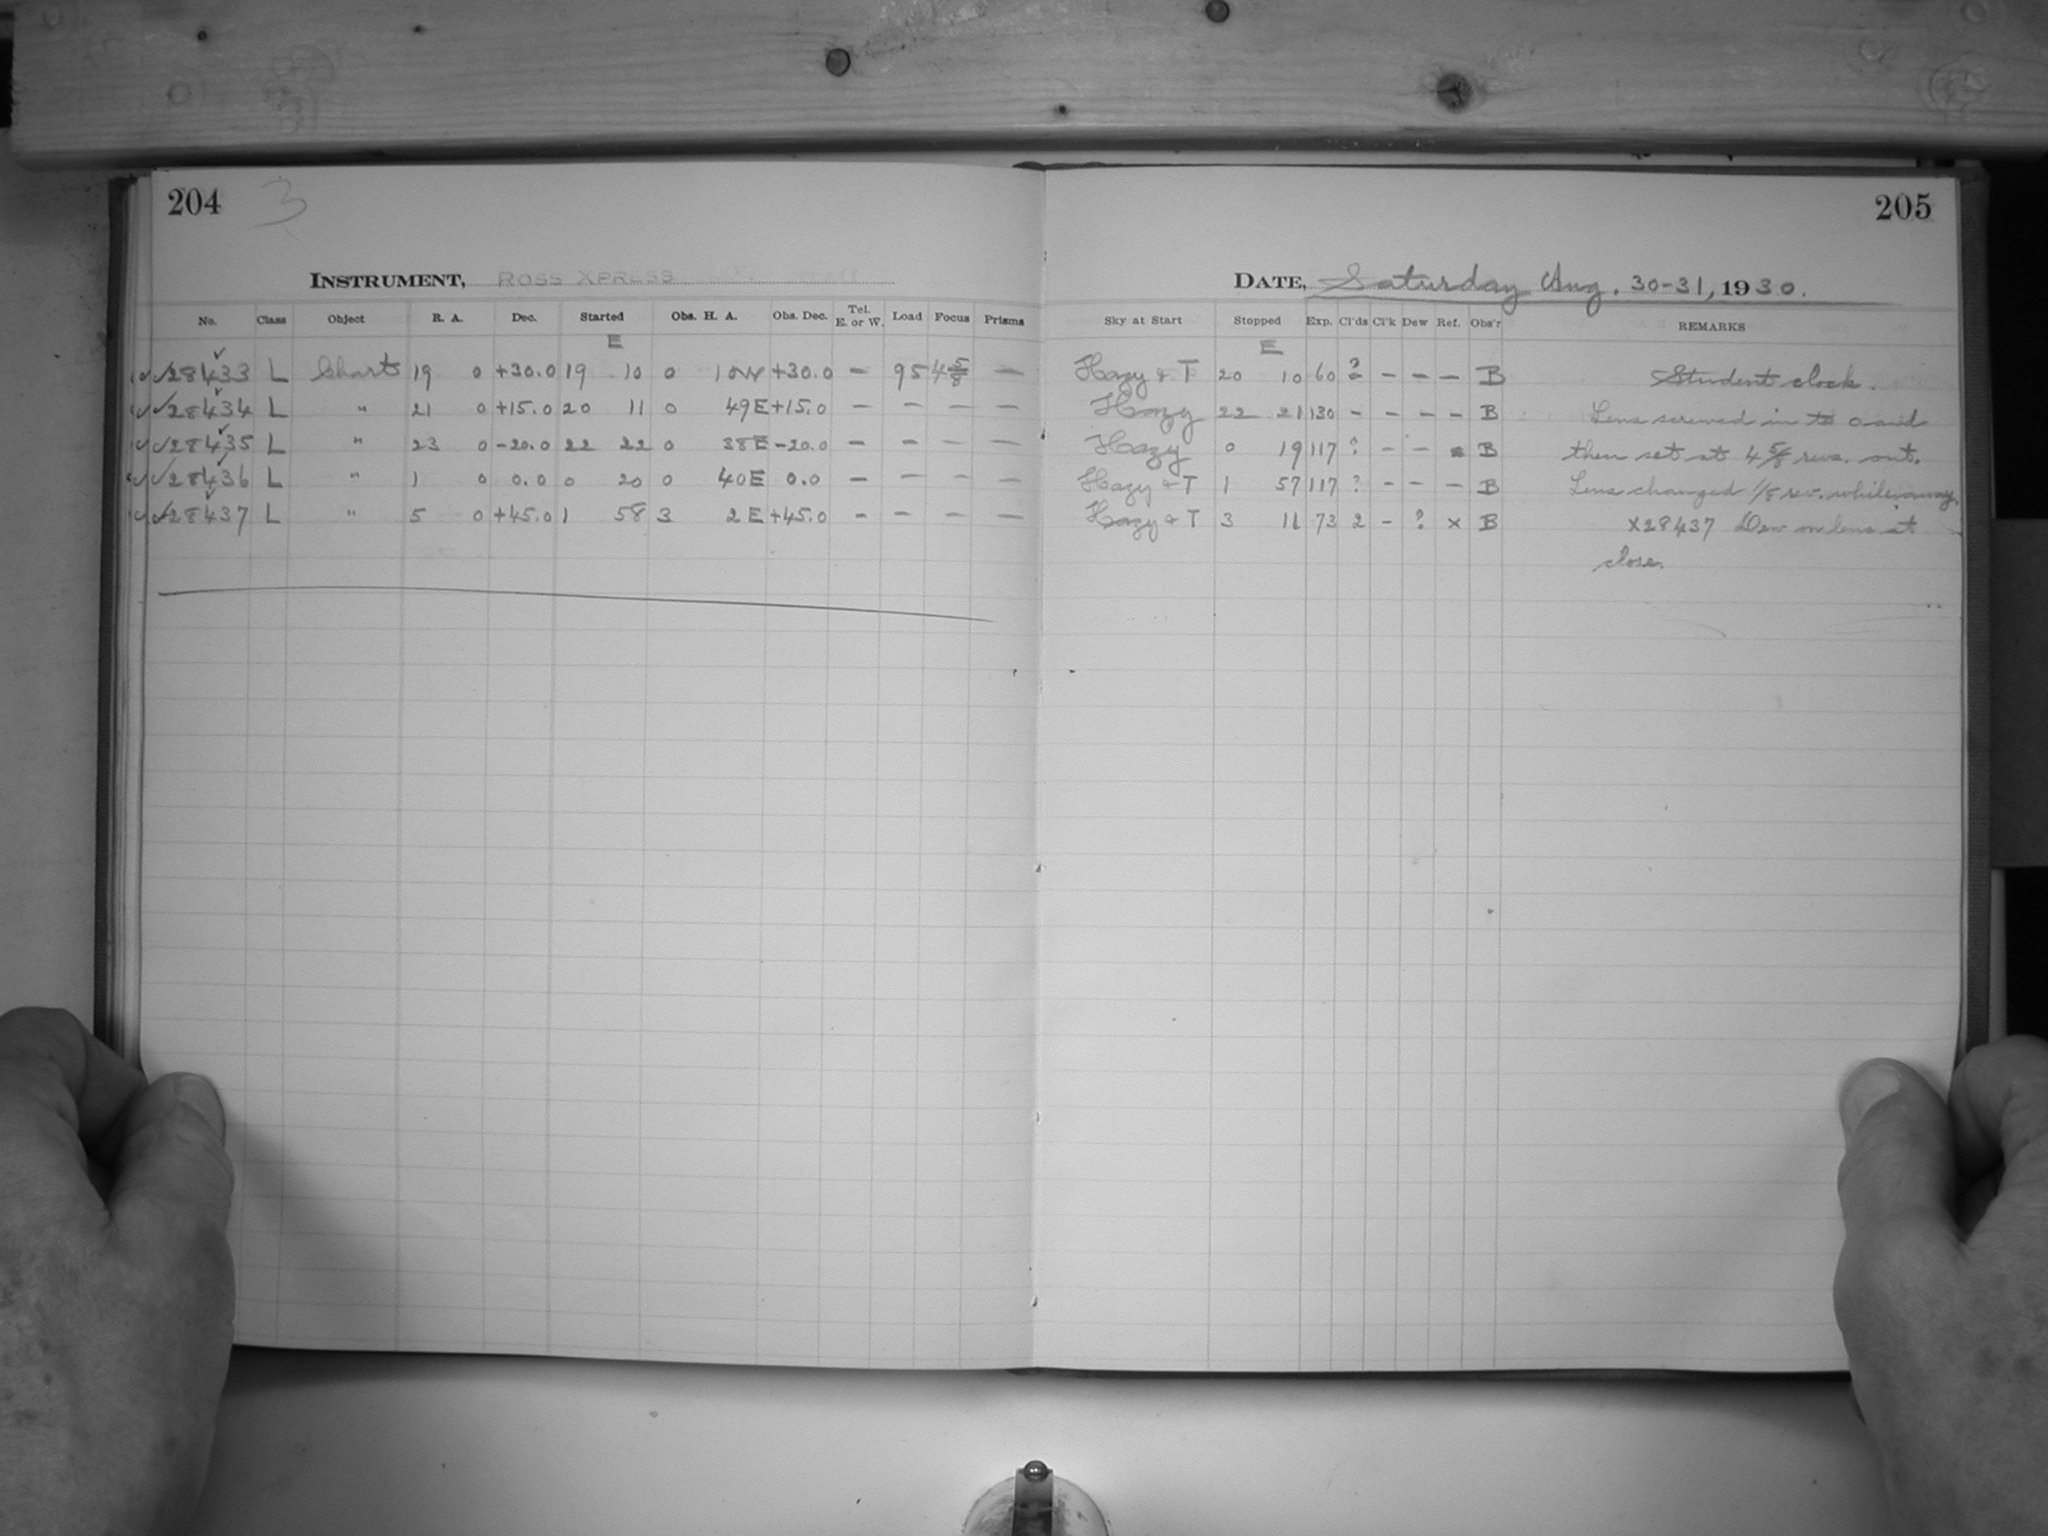 204 3
INSTRUMENT, ROSS XPRESS
No. Class Object R. A. Dec. Started Obs. H. A. Obs. Dec. Tel. E. or W. Load Focus Prisms
E
✓✓28433✓ L Chart 19 0 +30.0 19 10 0 10W +30.0 — 95 4 5/8 —
✓✓28434✓ L " 21 0 +15.0 20 11 0 49E +15.0 — — — —
✓✓28435✓ L " 23 0 -20.0 22 22 0 38E -20.0 — — — —
✓✓28436✓ L " 1 0 0.0 0 20 0 40E 0.0 — — — —
✓✓28437✓ L " 5 0 +45.0 1 58 3 2E +45.0 — — — —
205
DATE, Saturday Aug. 30-31, 1930.
Sky at Start Stopped Exp. Cl'ds Cl'k Dew Ref. Obs'r REMARKS
E
Hazy & T 20 10 60 ? — — — B Student clock.
Hazy 22 21 130 - - - - B Lens screwed in to 0 and
Hazy 0 19 117 ? - - B then set at 4 5/8 revs. out.
Hazy & T 1 57 117 ? - - - B Lens changed 1/8 rev. while away.
Hazy & T 3 11 73 2 - ? x B X28437 Dew on lens at
close.